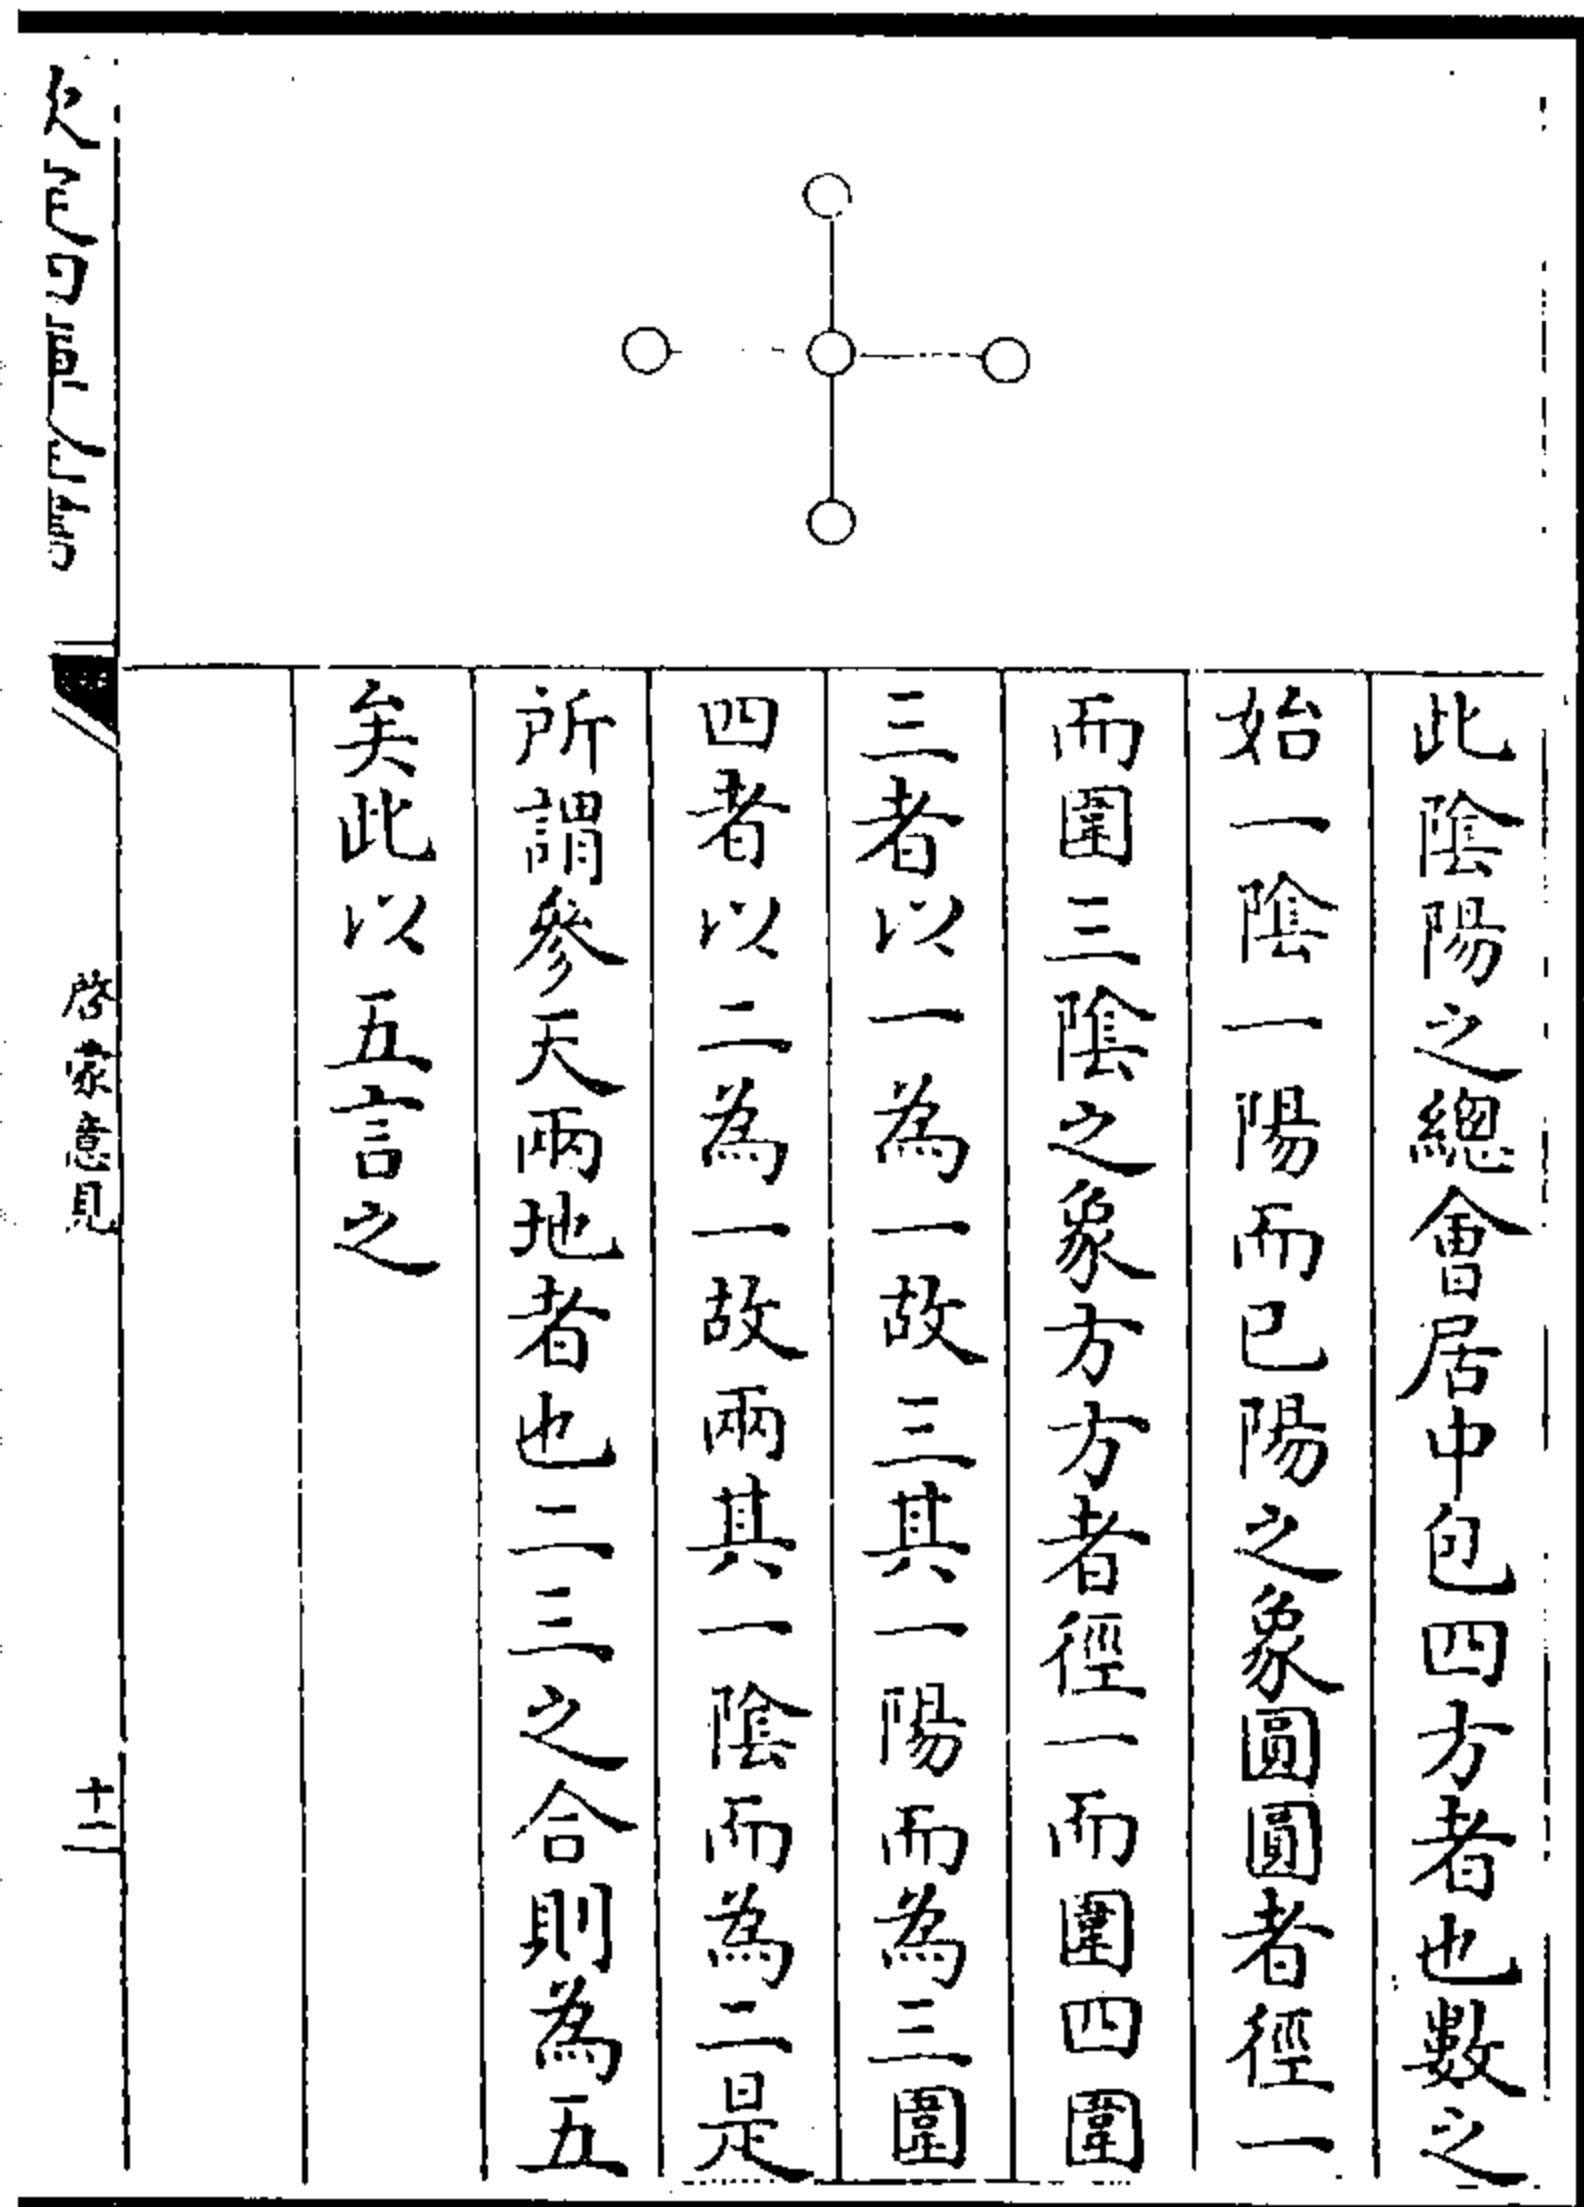 此陰陽之總會居中包四方者也數之
始一陰一陽而已陽之象圓圓者徑一
而圍三陰之象方方者徑一而圍四圍
三者以一為一故三其一陽而為三圍
四者以二為一故兩其一陰而為二是
所謂參天兩地者也二三之合則為五
矣此以五言之
啓蒙意見
十二